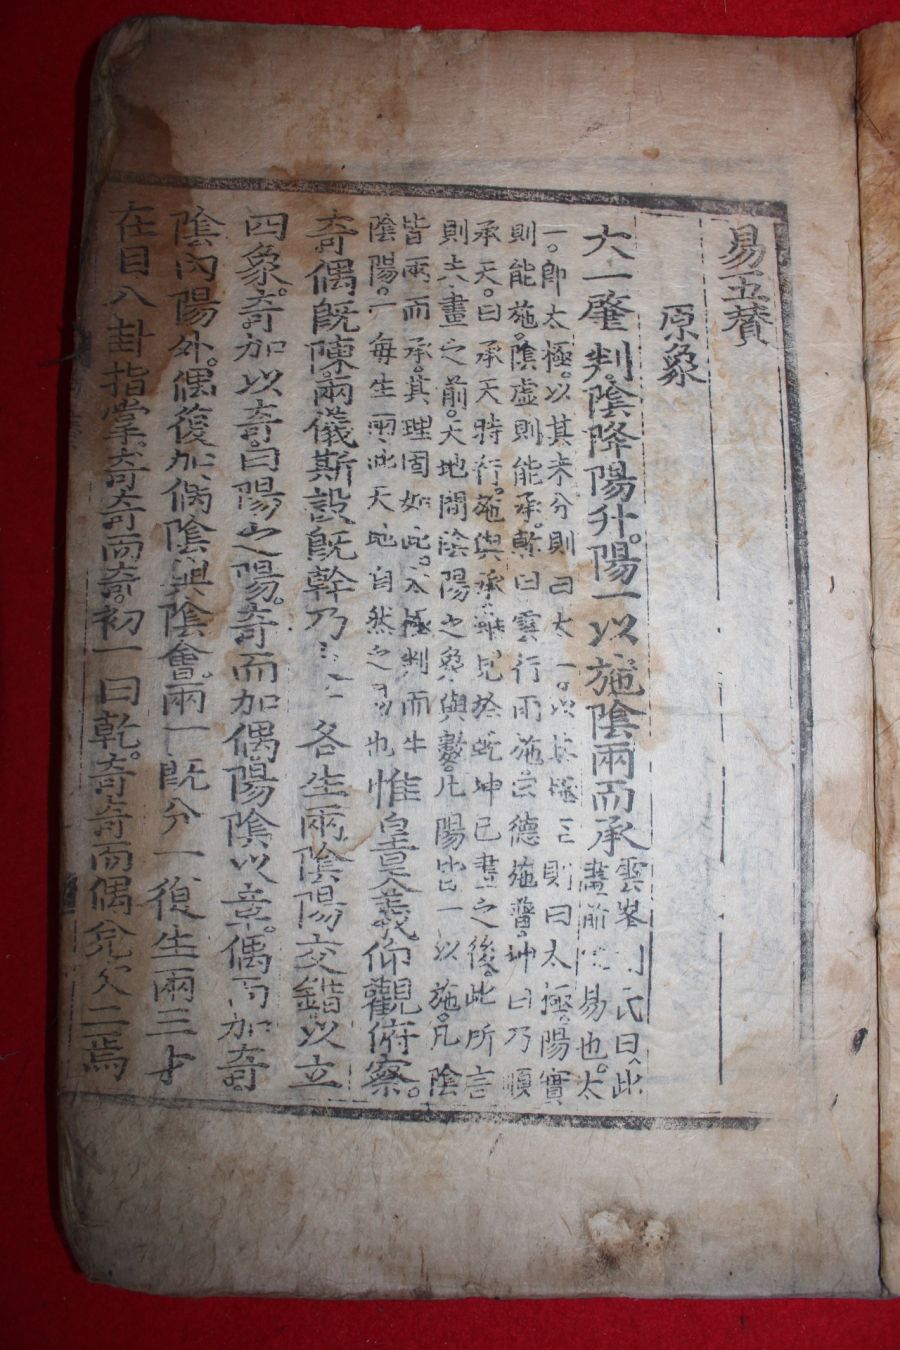 易五贊
原象
大一肇判陰降陽升。陽一以施陰兩而承
雲峯氏曰此
畫前易也。太
一。卽太極。以其未分則曰太一。以其極至則曰太極。陽實
則能施。陰虛則能承。乾曰雲行雨施。曰德施普。坤曰乃順
承天。曰承天時行。施與承雖見於乾坤已畫之後。此所言
則六畫之前。天地間陰陽之象與數。凡陽皆一以施。凡陰
皆兩而承。其理固如此。太極判而生
陰陽。一每生兩此天地自然之也
惟皇昊羲。仰觀俯察。
奇偶旣陳。兩儀斯設旣幹乃各生兩陰陽交錯以立
四象。奇加以奇。曰陽之陽。奇而加偶。陽陰以章。偶而加奇
陰內陽外。偶復加偶陰與陰會。兩一旣分一復生兩三才
在目八卦指掌。奇奇而奇。初一曰乾。奇奇而偶兌次二焉